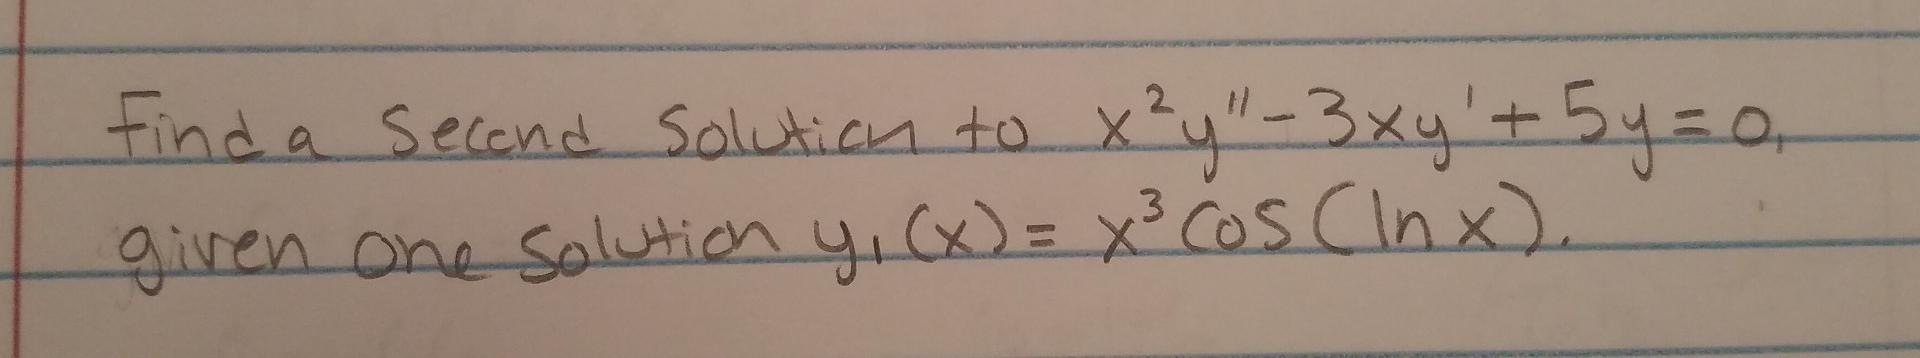 Find a second solution to x²y'' - 3xy' + 5y = 0,
given one solution y₁(x) = x³ cos(ln x).